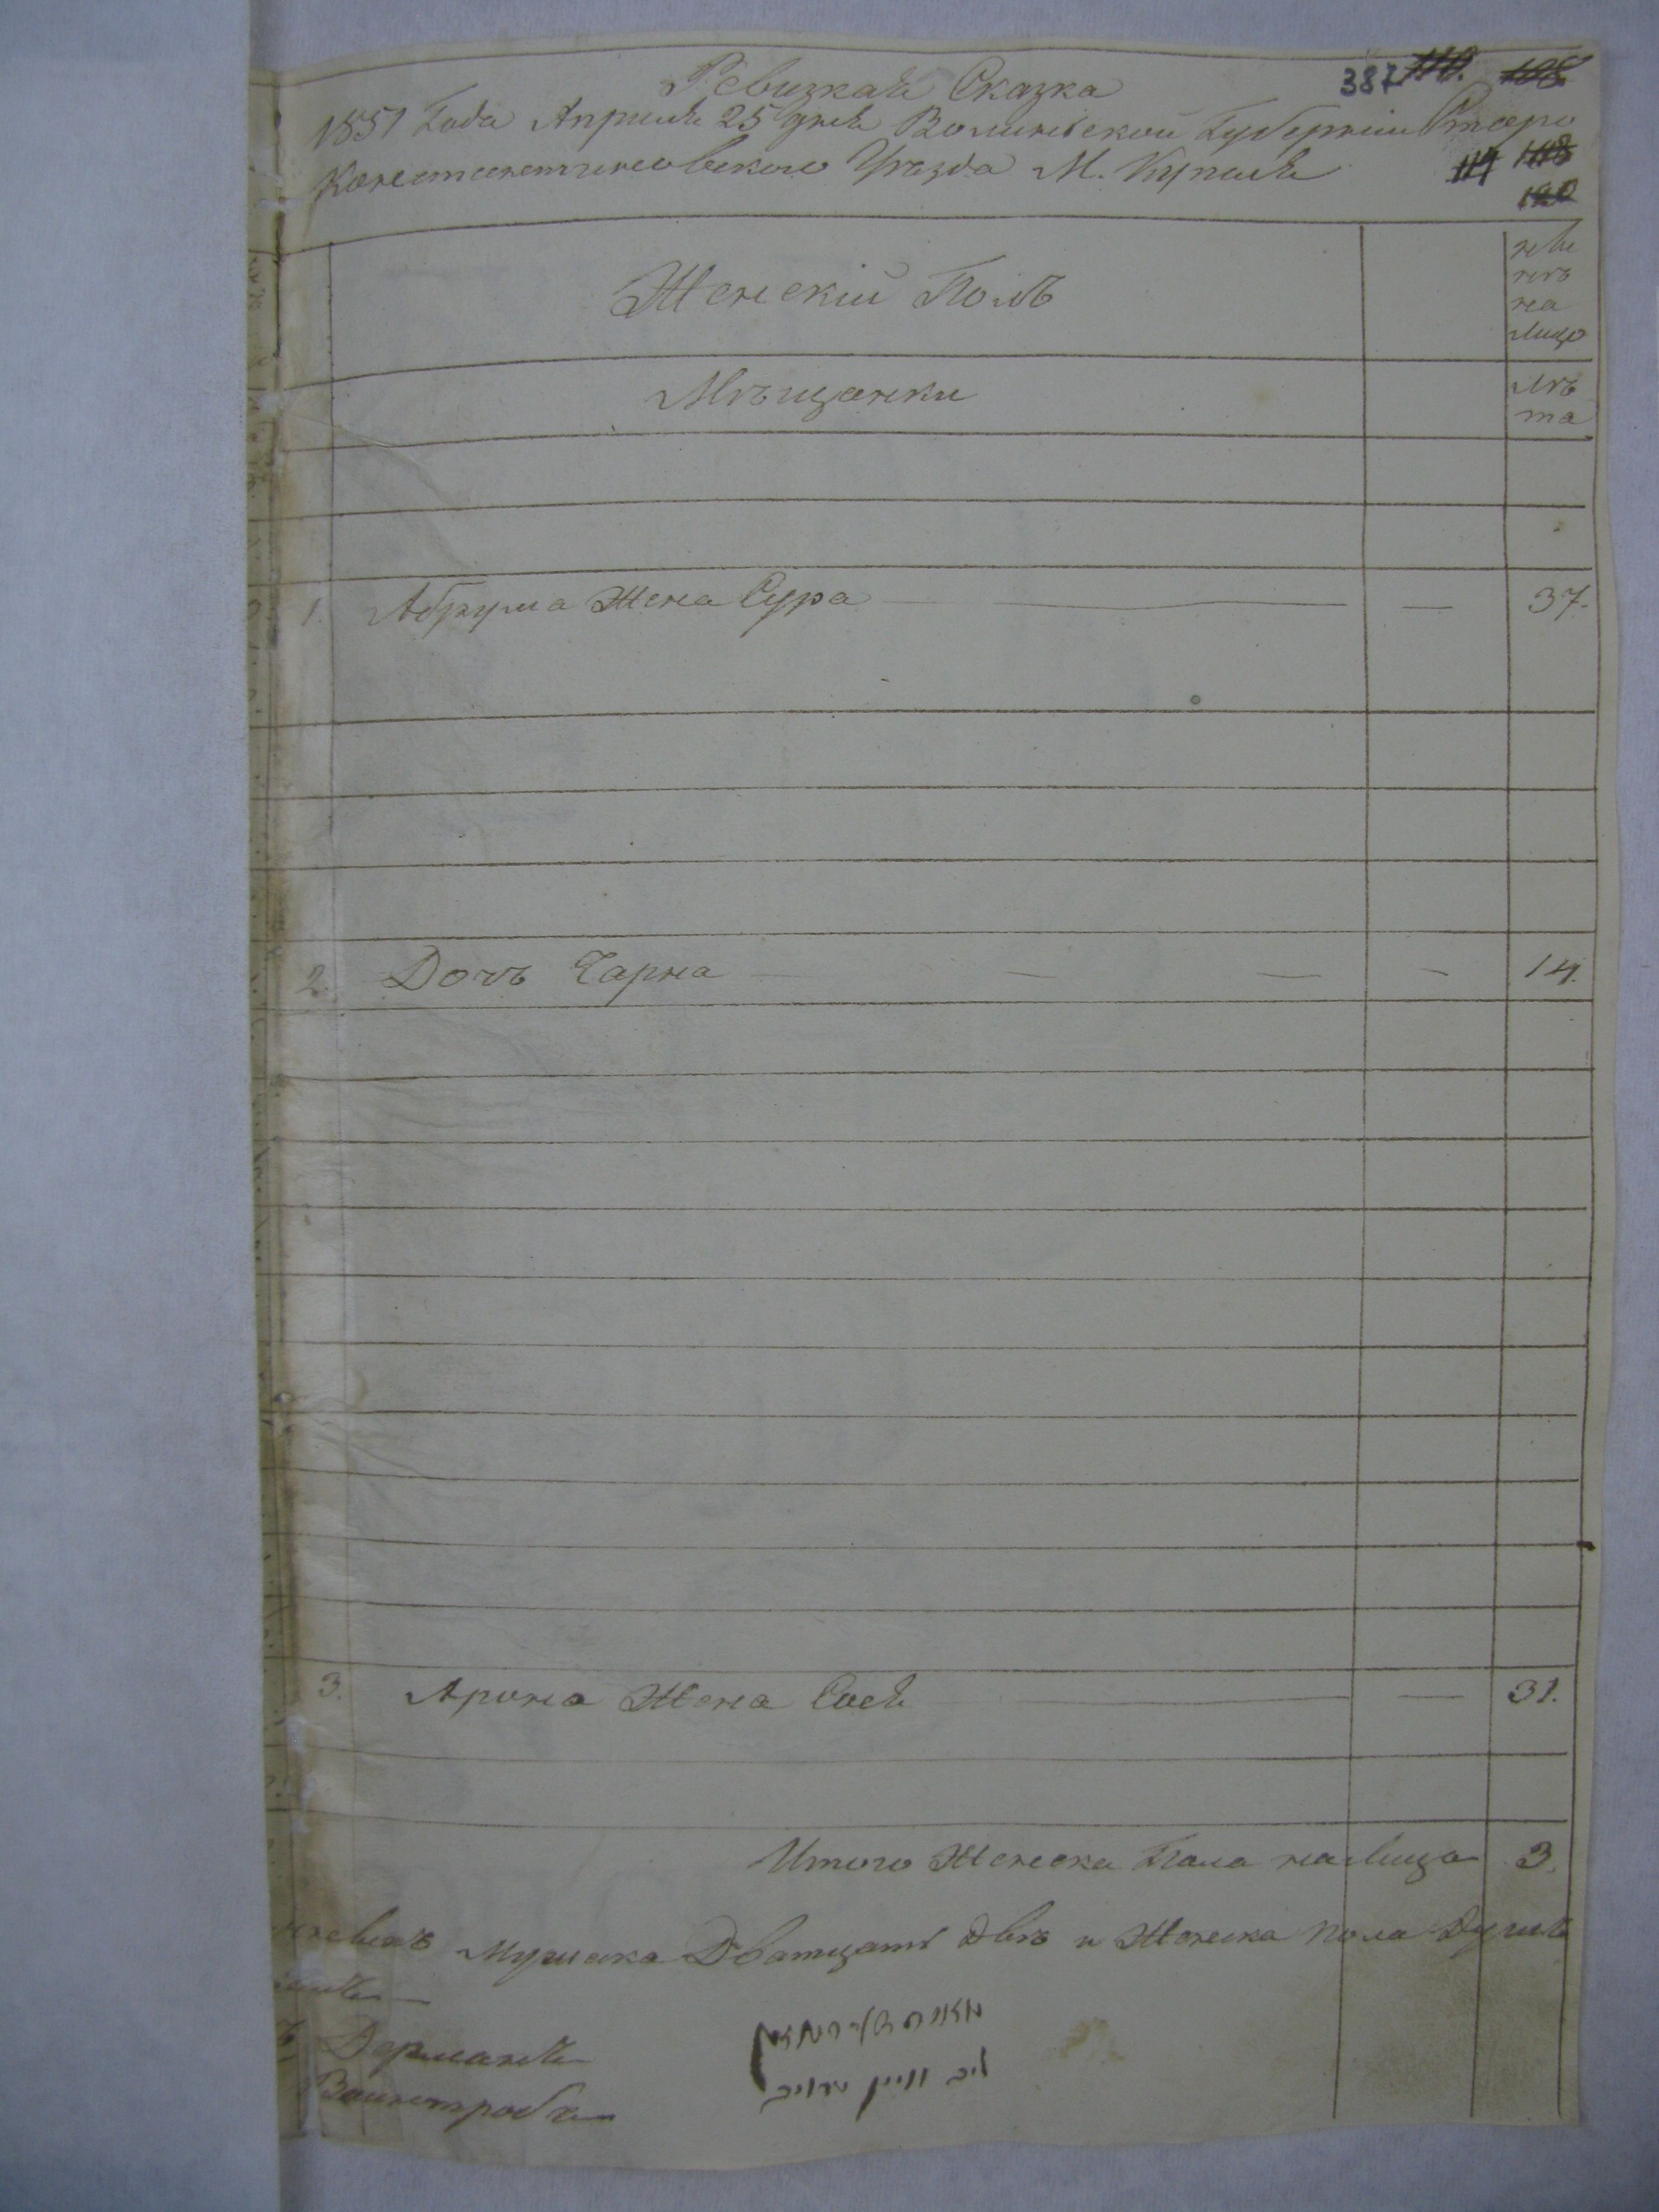 Ревизкая Сказка
387 110. 108
1851 Года Апреля 25 дня Волинской Губернии Старо
Константиновского Уезда М. Купеля
119 118
120
Женский Полъ
ныне
на
лицо
Мѣщанки
лѣ
та
1. Абрума Жена Сура — — 37.
2. Дочъ Чарна — — — — 14.
3. Арона Жена Сося — — 31.
Итого Женска Пола налицо 3.
Мужеска Дватцать двѣ и Женска пола Душъ
Дерманъ
Ваинтробъ
ליב וויין טרויב